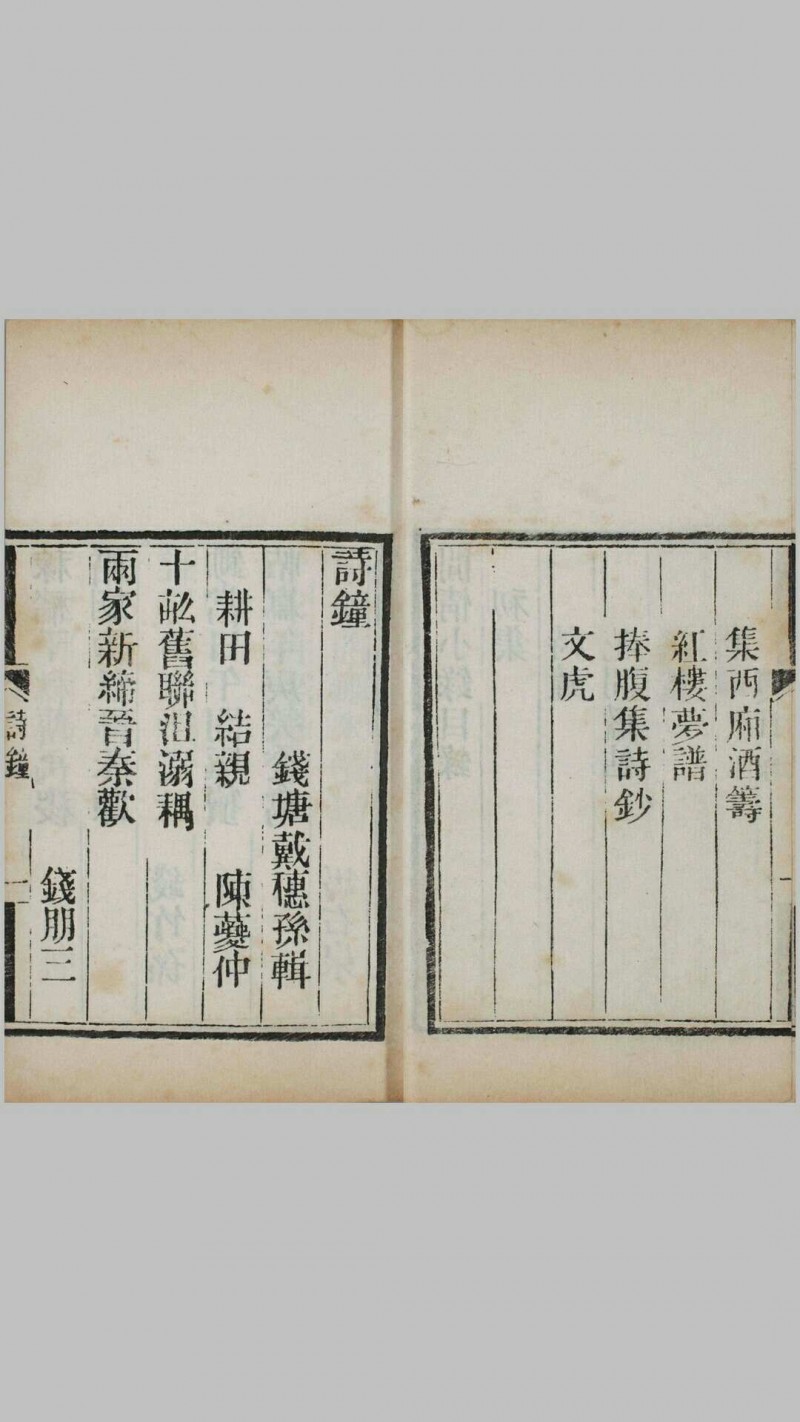 集西廂酒籌
紅樓夢譜
捧腹集詩鈔
文虎
詩鐘
錢塘戴穗孫輯
耕田 結親 陳夔仲
十畝舊聯沮溺耦
兩家新締晉秦歡
錢朋三
詩鐘 一